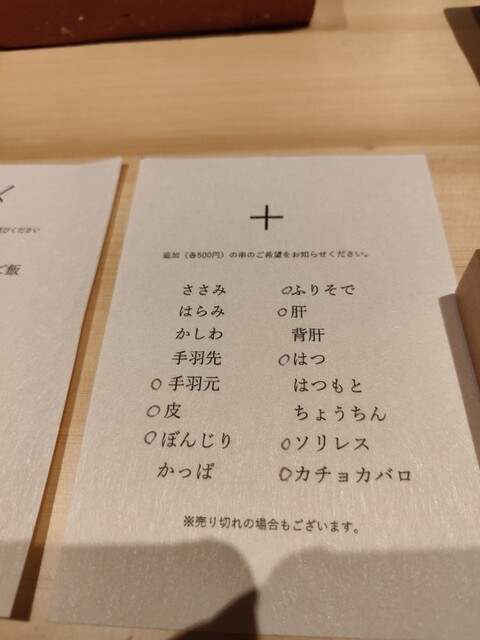 びください
ご飯
＋
追加（各500円）の串のご希望をお知らせください。
ささみ
はらみ
かしわ
手羽先
○手羽元
○皮
○ぼんじり
かっぱ
○ふりそで
○肝
背肝
○はつ
はつもと
ちょうちん
○ソリレス
○カチョカバロ
※売り切れの場合もございます。